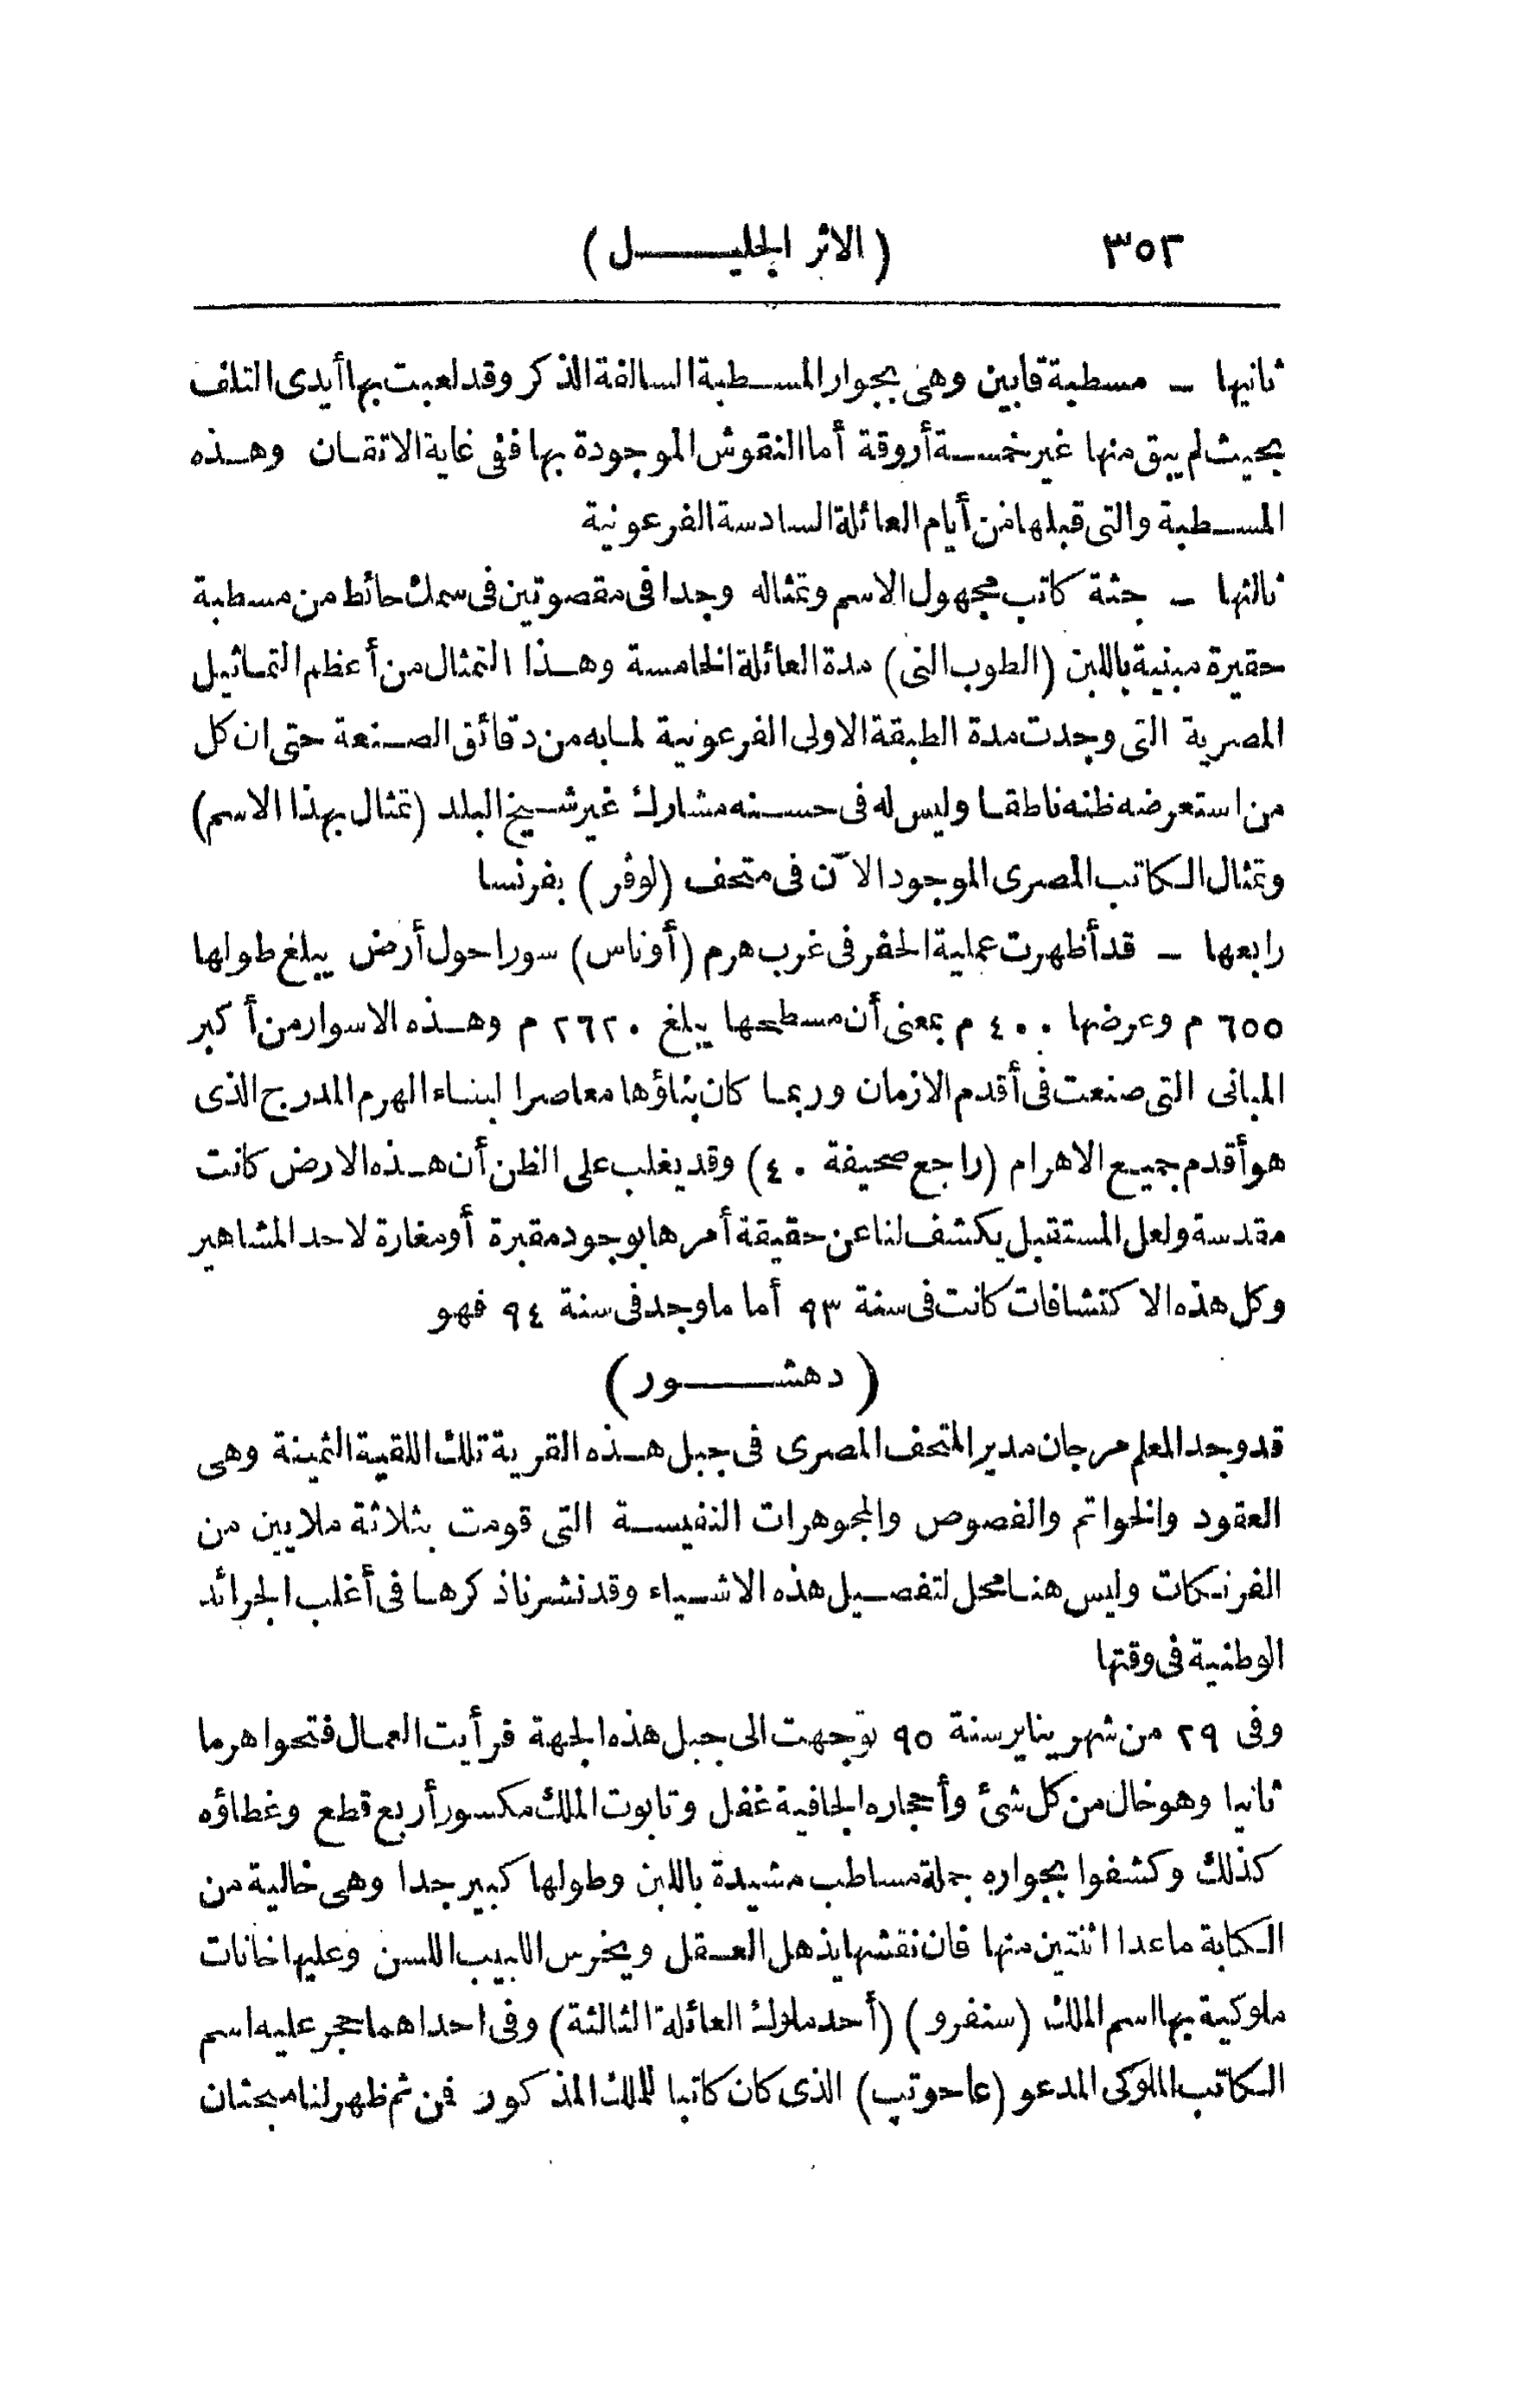 ٣٥٢ ( الاثر الجليل )
ثانيها - مسطبة قابين وهى بجوار المسطبة السالفة الذكر وقد لعبت بها أيدى التلف
بحيث لم يبق منها غير خمسة أروقة أما النقوش الموجودة بها ففى غاية الاتقان وهذه
المسطبة والتى قبلها فمن أيام العائلة السادسة الفرعونية
ثالثها - جثة كاتب مجهول الاسم وتمثاله وجدا فى مقصوتين فى سمك حائط من مسطبة
حقيرة مبنية باللبن (الطوب النى) مدة العائلة الخامسة وهذا التمثال من أعظم التماثيل
المصرية التى وجدت مدة الطبقة الاولى الفرعونية لمابه من دقائق الصنعة حتى ان كل
من استعرضه ظنه ناطقا وليس له فى حسنه مشارك غير شيخ البلد (تمثال بهذا الاسم)
وتمثال الكاتب المصرى الموجود الآن فى متحف (لوڤر) بفرنسا
رابعها - قد أظهرت عملية الحفر فى غرب هرم (أوناس) سورا حول أرض يبلغ طولها
٦٥٥ م وعرضها ٤٠٠ م بمعنى أن مسطحها يبلغ ٢٦٢٠ م وهذه الاسوار من أكبر
المبانى التى صنعت فى أقدم الازمان وربما كان بناؤها معاصرا لبناء الهرم المدرج الذى
هو أقدم جميع الاهرام (راجع صحيفة ٤٠) وقد يغلب على الظن أن هذه الارض كانت
مقدسة ولعل المستقبل يكشف لنا عن حقيقة أمرها بوجود مقبرة أو مغارة لاحد المشاهير
وكل هذه الاكتشافات كانت فى سنة ٩٣ أما ماوجد فى سنة ٩٤ فهو
( دهشور )
قد وجد المعلم مرجان مدير المتحف المصرى فى جبل هذه القرية تلك اللقية الثمينة وهى
العقود والخواتم والفصوص والمجوهرات النفيسة التى قومت بثلاثة ملايين من
الفرنكات وليس هنا محل لتفصيل هذه الاشياء وقد نشرنا ذكرها فى أغلب الجرائد
الوطنية فى وقتها
وفى ٢٩ من شهر يناير سنة ٩٥ توجهت الى جبل هذه الجهة فرأيت العمال فتحوا هرما
ثانيا وهو خال من كل شئ وأحجاره الجافية غفل وتابوت الملك مكسور أربع قطع وغطاؤه
كذلك وكشفوا بجواره جملة مساطب مشيدة باللبن وطولها كبير جدا وهى خالية من
الكتابة ماعدا اثنتين منها فان نقشها يذهل العقل ويخرس اللبيب اللسن وعليها خانات
ملوكية بها اسم الملك (سنفرو) (أحد ملوك العائلة الثالثة) وفى احداهما حجر عليه اسم
الكاتب الملوكى المدعو (عاحوتپ) الذى كان كاتبا للملك المذكور فمن ثم ظهر لنا مبحثان